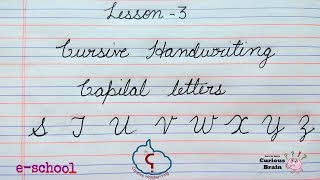 Lesson - 3
Cursive Handwriting
Capital letters
S T U V W X Y Z
e-school
Curious Brain